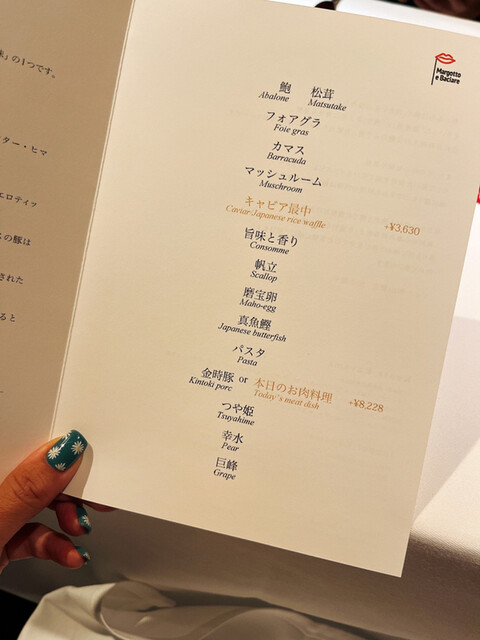 味」の1つです。
ター・ヒマ
エロティッ
この豚は
された
ると
Margotto
e Baciare
鮑 松茸
Abalone Matsutake
フォアグラ
Foie gras
カマス
Barracuda
マッシュルーム
Muschroom
キャビア最中
Caviar-Japanese rice waffle +¥3,630
旨味と香り
Consomme
帆立
Scallop
磨宝卵
Maho-egg
真魚鰹
Japanese butterfish
パスタ
Pasta
金時豚 or 本日のお肉料理
Kintoki porc Today's meat dish +¥8,228
つや姫
Tsuyahime
幸水
Pear
巨峰
Grape